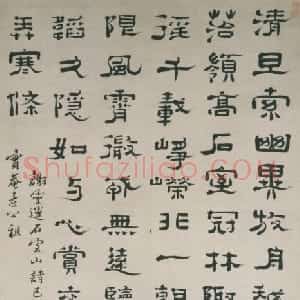 清旦索幽異放舟越
苔嶺高石室冠林陬
徑千載崢嶸非一
限風霄微戎無遠覽
韜久隱如与心賞交
弄寒條
謝靈運石室山詩
寶菴老公祖
Shufaziliao.com